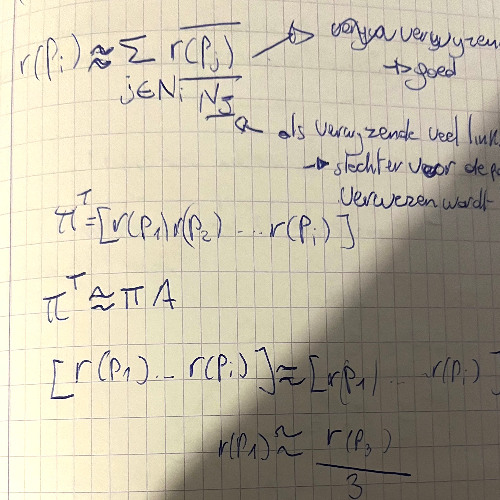 r(Pi) ≈ Σ r(Pj)
j∈Ni Nj
→ goed
als verwyzende veel link
→ slechter voor de pa
verwezen wordt
π^T = [r(P1) r(P2) ... r(Pi)]
π^T ≈ π A
[r(P1) ... r(Pi)] ≈ [r(P1) ... r(Pi)]
r(P1) ≈ r(P3)
3